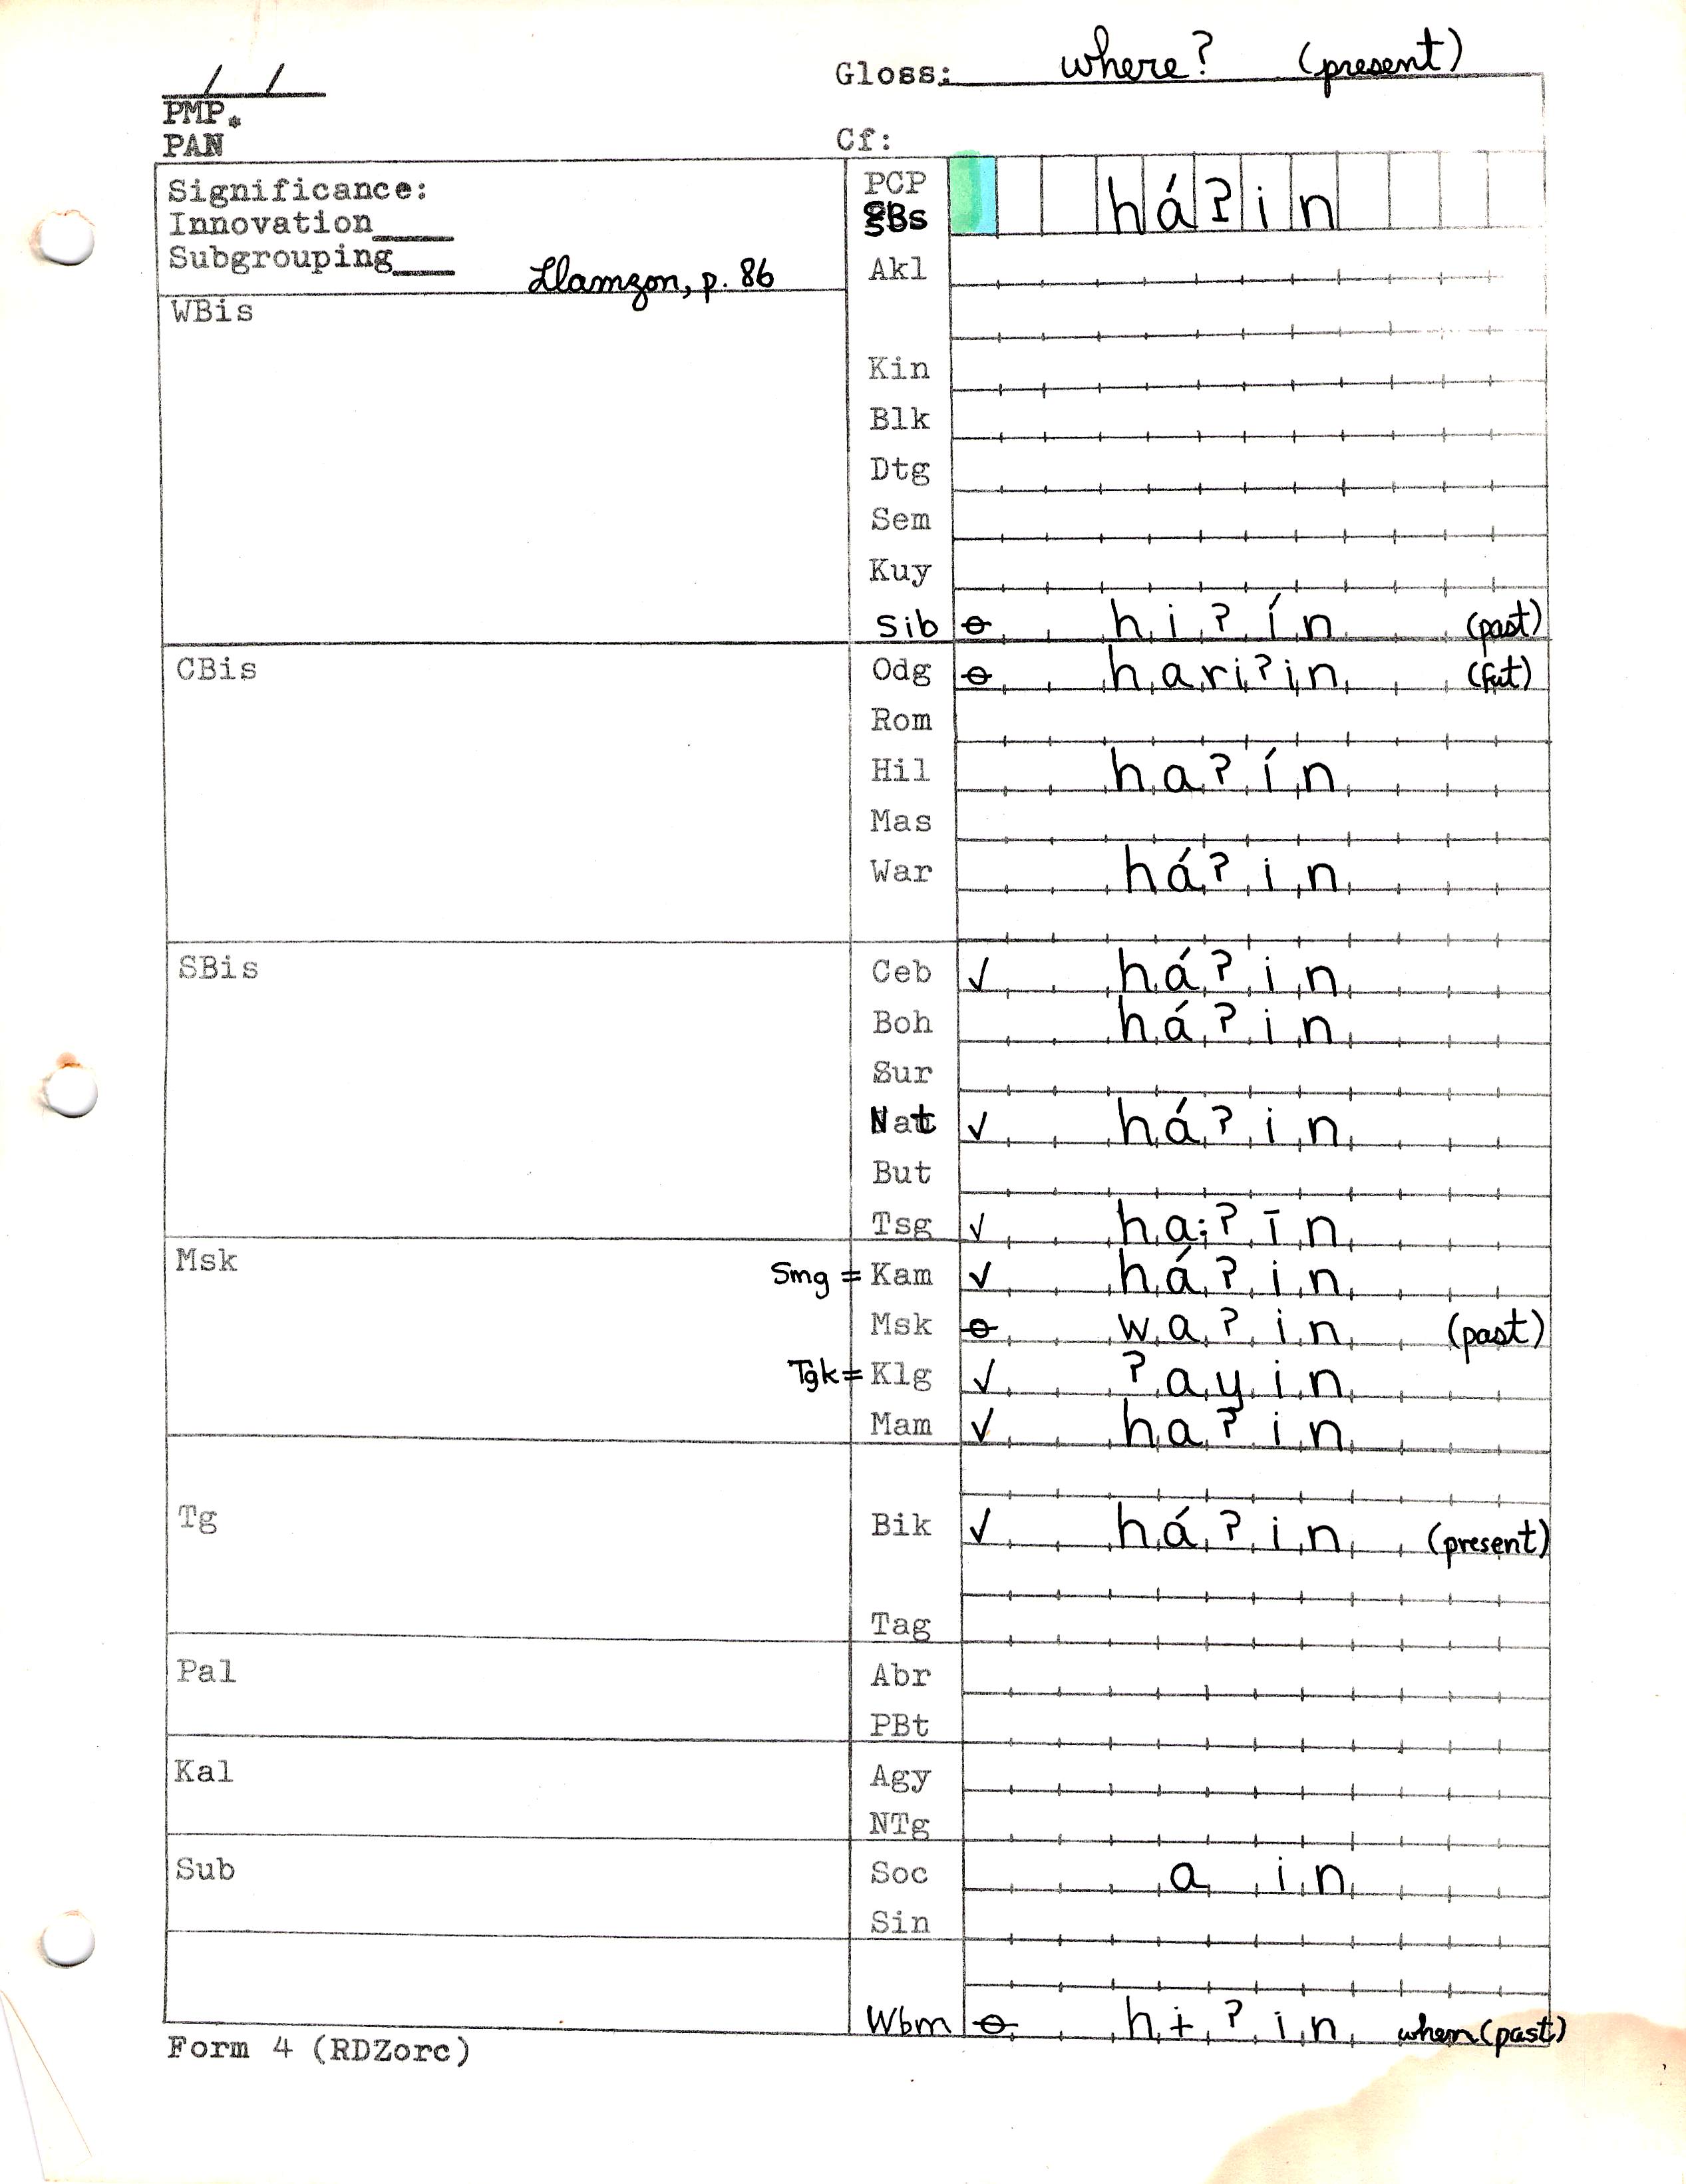 Gloss: where? (present)
/ /
PMP*
PAN
Cf:
Significance:
Innovation
Subgrouping
Llamzon, p. 86
PCP
SBs háʔin
Akl
WBis
Kin
Blk
Dtg
Sem
Kuy
Sib ɵ hiʔín (past)
CBis
Odg ɵ hariʔin (fut)
Rom
Hil haʔín
Mas
War háʔin
SBis
Ceb ✓ háʔin
Boh háʔin
Sur
Nat ✓ háʔin
But
Tsg ✓ ha:ʔīn
Msk
Smg = Kam ✓ háʔin
Msk ɵ waʔin (past)
Tgk = Klg ✓ ʔayin
Mam ✓ haʔin
Tg
Bik ✓ háʔin (present)
Tag
Pal
Abr
PBt
Kal
Agy
NTg
Sub
Soc a in
Sin
Wbm ɵ hɨʔin when (past)
Form 4 (RDZorc)